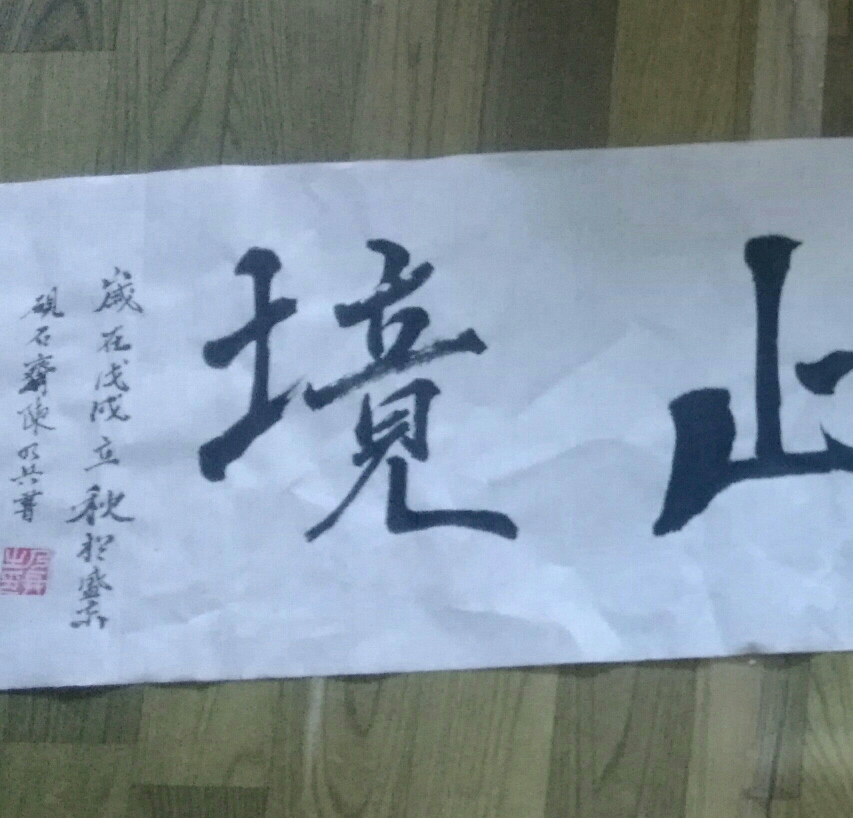 止境
歲在戊戌立秋於盛京
硯石齋陳明兴書